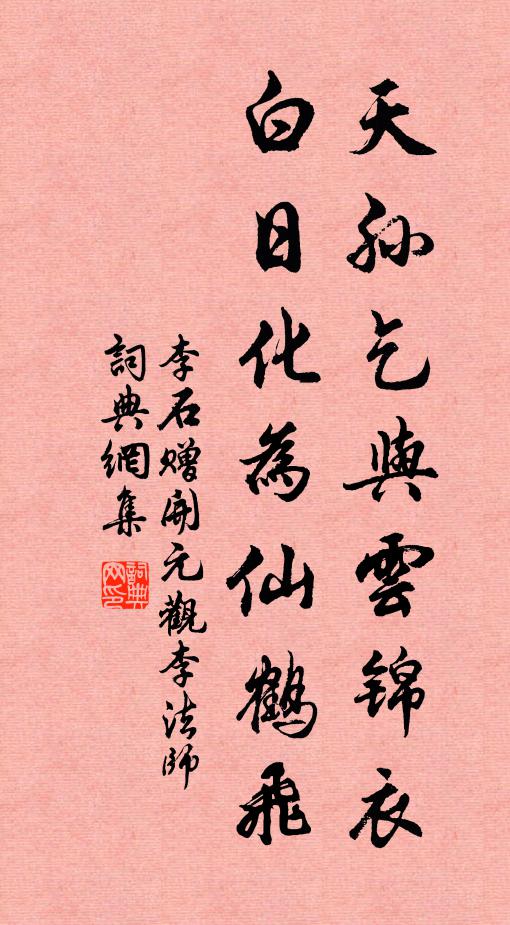 天孙乞與雲锦衣
白日化為仙鶴飛
李石赠開元觀李法師
詞典網集
詞典網印